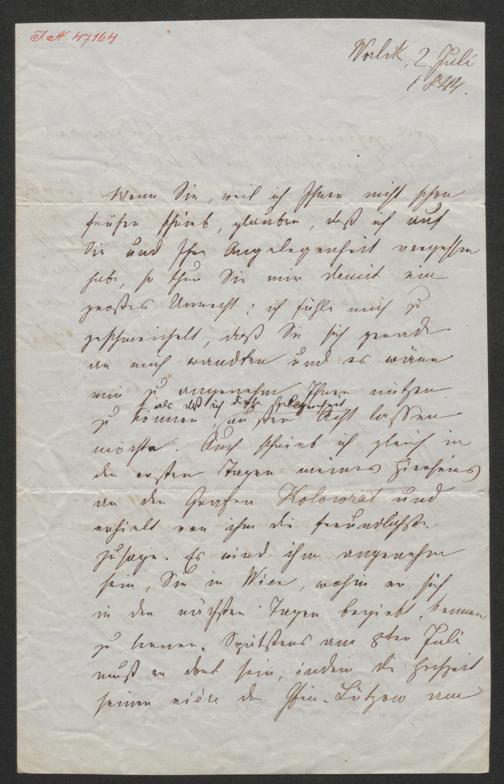 I.N. 47164
Worlik, 2. Juli
1844.
Wenn Sie, weil ich Ihnen nicht schon
früher schrieb, glauben, daß ich auf
Sie und Ihre Angelegenheit vergessen
habe, so thun Sie mir damit ein
großes Unrecht; ich fühle mich zu
geschmeichelt, daß Sie sich gerade
an mich wandten und es wäre
mir zu angenehm Ihnen nützen
als daß ich diese Gelegenheit
zu können, außer Acht lassen
möchte. Auch schrieb ich gleich in
den ersten Tagen meines Hierseins
an den Grafen Kolowrat und
erhielt von ihm die freundlichste
Zusage. Es wird ihm angenehm
sein, Sie in Wien, wohin er sich
in den nächsten Tagen begiebt, kennen
zu lernen. Spätstens am 8ten Juli
muß er dort sein, indem die Hochzeit
seiner nièce der Gfin. Lützow am